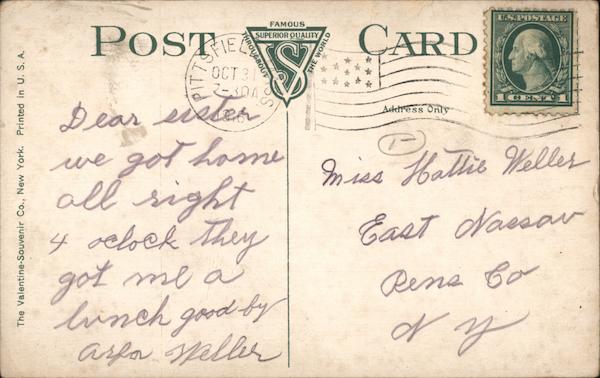 POST CARD
FAMOUS
SUPERIOR QUALITY
THROUGHOUT THE WORLD
VS
U.S. POSTAGE
1 CENT 1
PITTSFIELD
OCT 31
7-30A
MASS
Address Only
1-
Dear sister
we got home
all right
4 oclock they
got me a
lunch good by
Weller
Miss Hattie Weller
East Nassau
Rens Co
N Y
The Valentine-Souvenir Co., New York. Printed in U. S. A.